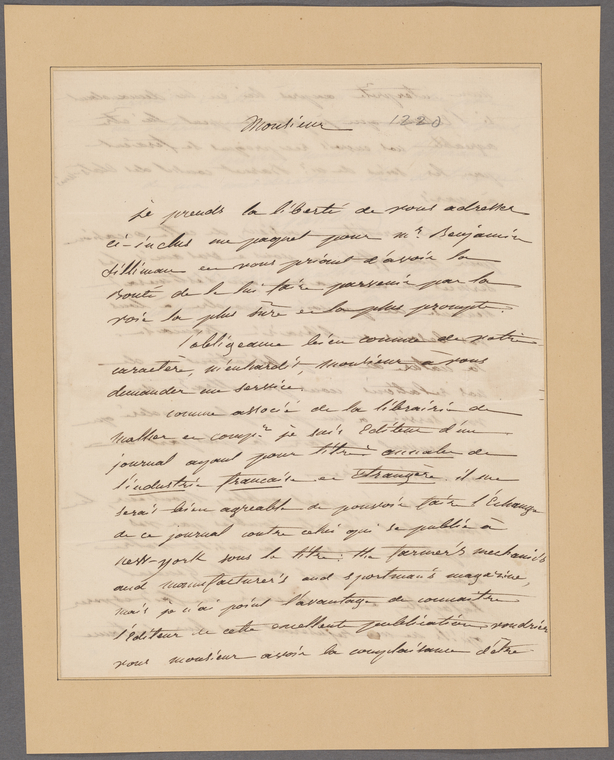 Monsieur 1220
Je prends la liberté de vous adresser
ci-inclus un paquet pour mr. Benjamin
Silliman en vous priant d'avoir la
Bonté de le lui faire parvenir par la
voie la plus sûre et la plus prompte.
l'obligeance bien connue de votre
caractere, m'enhardit, monsieur à vous
demander un service.
comme associé de la librairie de
Malher et compie je suis Editeur d'un
journal ayant pour titre annales de
l'industrie francaise et Etrangère. il me
serait bien agreable de pouvoir faire l'Echange
de ce journal contre celui qui se publie à
new-york sous le titre: the farmer's mechanic's
and manufacturer's and sportman's magazine,
mais je n'ai point l'avantage de connaitre
l'Editeur de cette excellente publication. voudriez
vous monsieur avoir la complaisance d'être